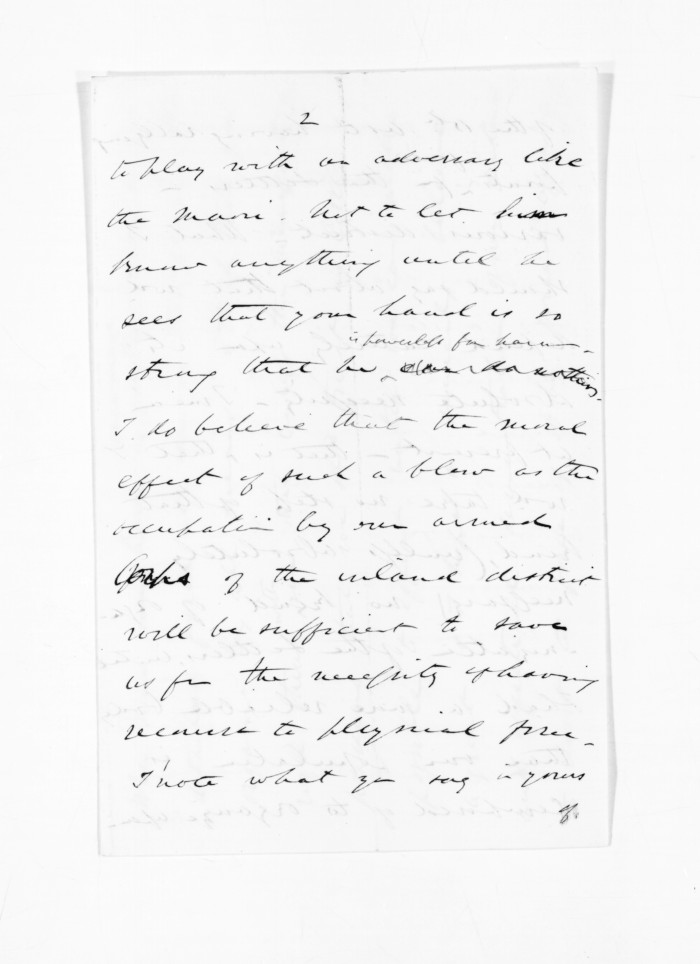 2
to play with an adversary like
the Maori. Not to let him
know anything until he
sees that your hand is so
is powerless for harm.
strong that he can do nothing.
I do believe that the moral
effect of such a blow as the
occupation by our armed
Corps of the inland district
will be sufficient to save
us fm the necessity of having
recourse to physical force.
I note what yr say in yours
of.